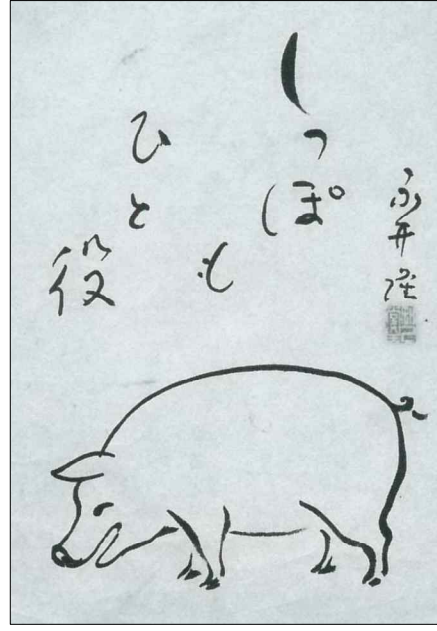 しっぽ
も
ひと
役
永井隆